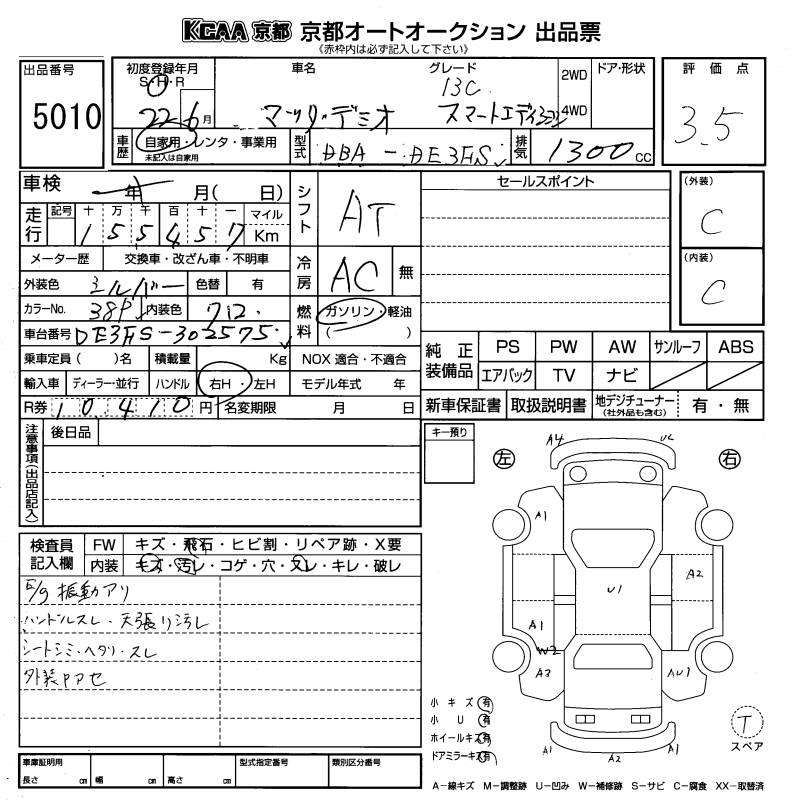 KCAA 京都 京都オートオークション 出品票
《赤枠内は必ず記入して下さい》
出品番号
5010
初度登録年月
S・H・R
22 6月
車名
マツダ・デミオ
グレード
13C
スマートエディション
2WD
4WD
ドア・形状
評価点
3.5
車歴
自家用・レンタ・事業用
未記入は自家用
型式
DBA-DE3FS
排気
1300 cc
車検
年 月( 日)
走行
記号 十 万 千 百 十 一 マイル
1 5 5 4 5 7 Km
シフト
AT
メーター歴 交換車・改ざん車・不明車
外装色 シルバー 色替 有
冷房
AC 無
カラーNo. 38P 内装色 712
燃料
ガソリン・軽油
( )
車台番号 DE3FS-302575
乗車定員( )名 積載量 Kg NOX 適合・不適合
輸入車 ディーラー・並行 ハンドル 右H・左H モデル年式 年
R券 10,410円 名変期限 月 日
セールスポイント
(外装)
C
(内装)
C
純正装備品
PS PW AW サンルーフ ABS
エアバック TV ナビ
新車保証書 取扱説明書 地デジチューナー(社外品も含む) 有・無
注意事項(出品店記入)
後日品
キー預り
検査員記入欄
FW キズ・飛石・ヒビ割・リペア跡・X要
内装 キズ・汚レ・コゲ・穴・スレ・キレ・破レ
E/g 振動アリ
ハンドルスレ・天張り汚レ
シートシミ・ヘタリ・スレ
外装ヤケアセ
左
右
A4
U2
A1
A2
U1
A1
W2
A3
AU1
A1
A2
A1
小キズ 有
小U 有
ホイールキズ 有
ドアミラーキズ 有
T
スペア
車庫証明用
長さ cm 幅 cm 高さ cm
型式指定番号
類別区分番号
A-線キズ M-調整跡 U-凹み W-補修跡 S-サビ C-腐食 XX-取替済